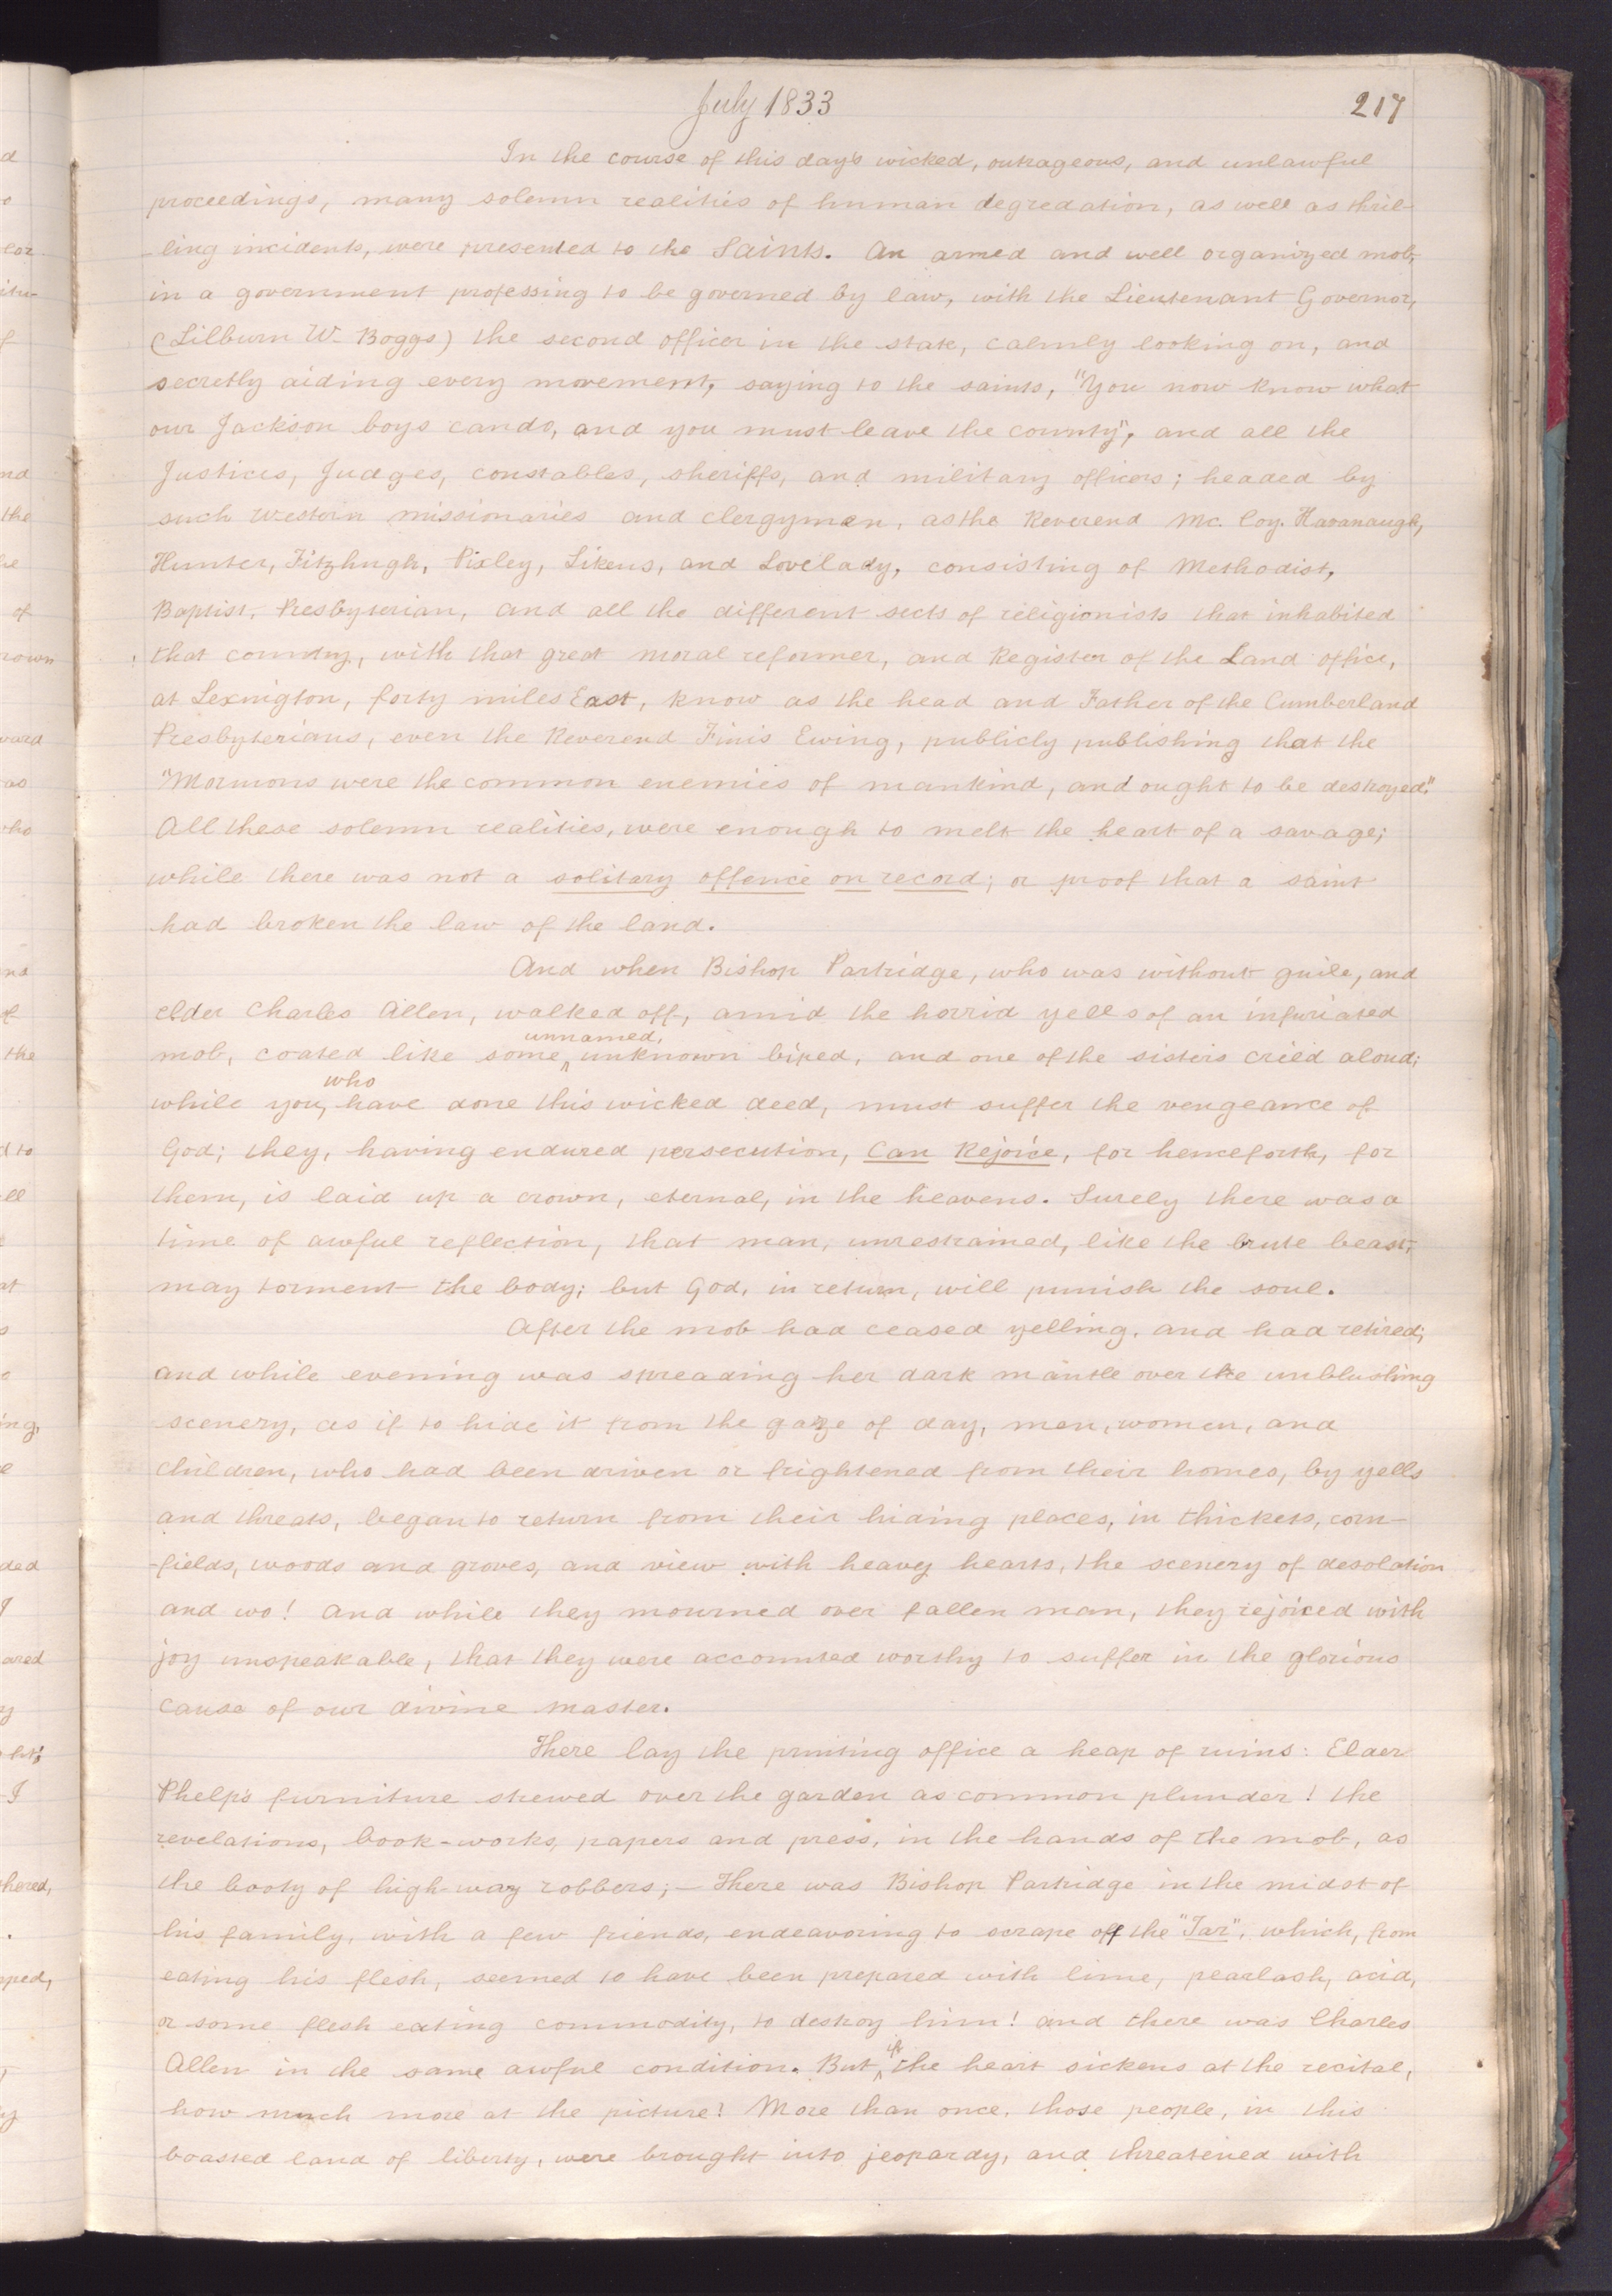 July 1833
217
In the course of this day's wicked, outrageous, and unlawful
proceedings, many solemn realities of human degredation, as well as thril-
ling incidents, were presented to the Saints. An armed and well organized mob,
in a government professing to be governed by law, with the Lieutenant Governor,
(Lilburn W. Boggs) the second officer in the state, calmly looking on, and
secretly aiding every movement, saying to the saints, "You now know what
our Jackson boys can do, and you must leave the county", and all the
Justices, Judges, constables, sheriffs, and military officers; headed by
such western missionaries and clergymen, as the Reverend Mc. Coy. Kavanaugh,
Hunter, Fitzhugh, Pixley, Likens, and Lovelady, consisting of Methodist,
Baptist, Presbyterian, and all the different sects of religionists that inhabited
that country, with that great moral reformer, and Register of the Land office,
at Lexington, forty miles East, know as the head and Father of the Cumberland
Presbyterians, even the Reverend Finis Ewing, publicly publishing that the
"Mormons were the common enemies of mankind, and ought to be destroyed."
All these solemn realities, were enough to melt the heart of a savage;
while there was not a solitary offence on record; or proof that a saint
had broken the law of the land.
And when Bishop Partridge, who was without guile, and
elder Charles Allen, walked off, amid the horrid yells of an infuriated
mob, coated like some unnamed, unknown biped, and one of the sisters cried aloud;
while you, who have done this wicked deed, must suffer the vengeance of
God; they, having endured persecution, can rejoice, for henceforth, for
them, is laid up a crown, eternal, in the heavens. Surely there was a
time of awful reflection, that man, unrestrained, like the brute beast,
may torment the body; but God, in return, will punish the soul.
After the mob had ceased yelling, and had retired;
and while evening was spreading her dark mantle over the unblushing
scenery, as if to hide it from the gaze of day, men, women, and
children, who had been driven or frightened from their homes, by yells
and threats, began to return from their hiding places, in thickets, corn-
fields, woods and groves, and view with heavy hearts, the scenery of desolation
and wo! and while they mourned over fallen man, they rejoiced with
joy unspeakable, that they were accounted worthy to suffer in the glorious
cause of our divine master.
There lay the printing office a heap of ruins: Elder
Phelp's furniture strewed over the garden as common plunder! the
revelations, book-works, papers and press, in the hands of the mob, as
the booty of high-way robbers; – There was Bishop Partridge in the midst of
his family, with a few friends, endeavoring to scrape off the "Tar", which, from
eating his flesh, seemed to have been prepared with lime, pearlash, acid,
or some flesh eating commodity, to destroy him! and there was Charles
Allen in the same awful condition. But, if the heart sickens at the recital,
how much more at the picture! More than once, those people, in this
boasted land of liberty, were brought into jeopardy, and threatened with